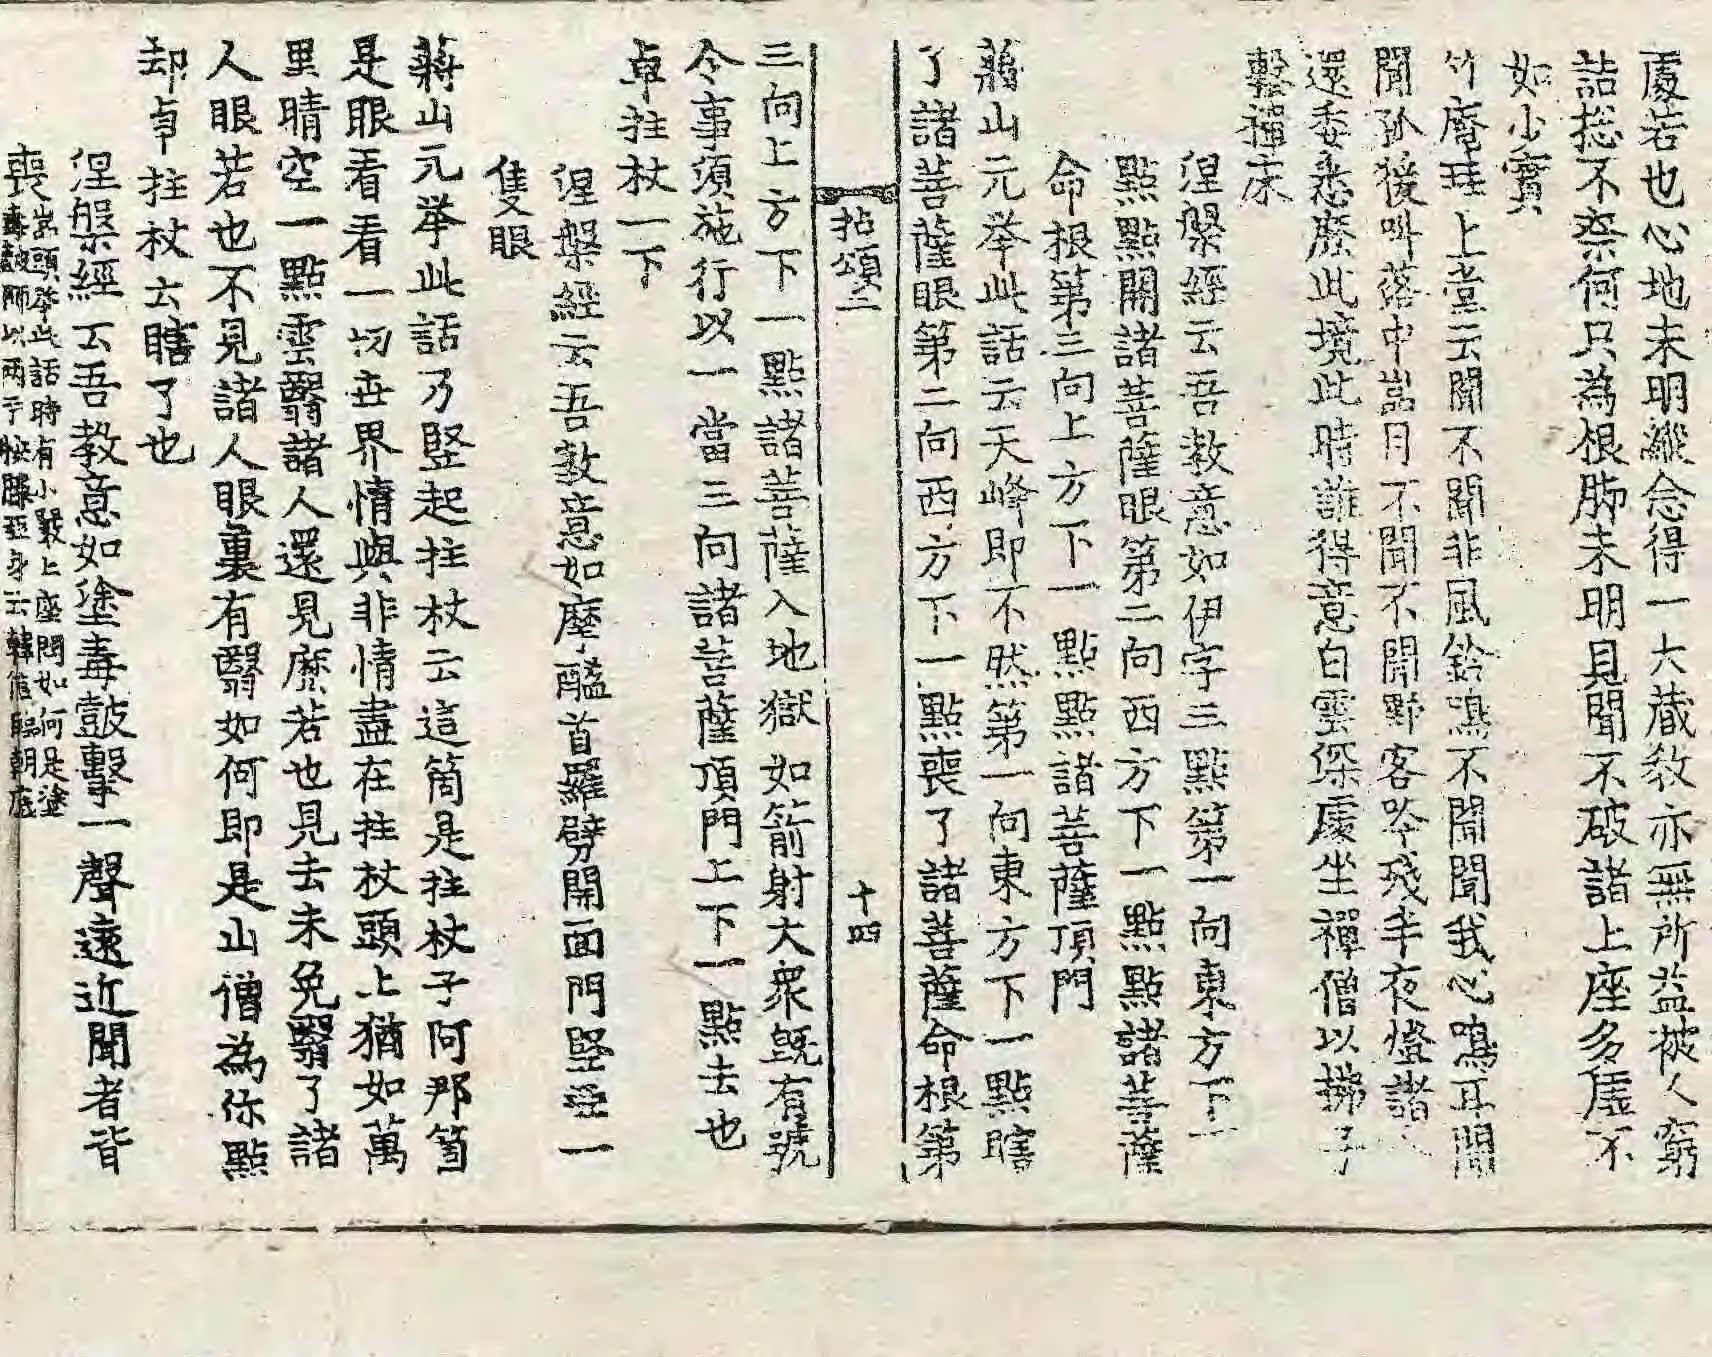 處若也心地未明縱念得一大藏教亦無所益被人窮
詰捴不柰何只為根脚未明見聞不破諸上座多虛不
如少實
竹庵珪上堂云聞不聞非風鈴鳴不聞聞我心鳴耳聞
聞孤猿呌落中嵓月不聞不聞野客吟殘半夜燈諸人
還委悉麽此境此時誰得意白雲深處坐禪僧以拂子
擊禪床
涅槃經云吾教意如伊字三點第一向東方下一
點點開諸菩薩眼第二向西方下一點點諸菩薩
命根第三向上方下一點點諸菩薩頂門
蔣山元举此話云天峰即不然第一向東方下一點瞎
了諸菩薩眼第二向西方下一點喪了諸菩薩命根第
拈頌二 十四
三向上方下一點諸菩薩入地獄如箭射大衆旣有號
令事須施行以一當三向諸菩薩頂門上下一點去也
卓拄杖一下
涅槃經云吾教意如摩醯首羅劈開面門竪亞一
隻眼
蔣山元举此話乃竪起拄杖云這箇是拄杖子阿那箇
是眼看看一切世界情與非情盡在拄杖頭上猶如萬
里晴空一點雲翳諸人還見麽若也見去未免翳了諸
人眼若也不見諸人眼裏有翳如何即是山僧為你點
却卓拄杖云瞎了也
涅槃經云吾教意如塗毒鼓擊一聲遠近聞者皆
喪嵓頭举此話時有小嚴上座問如何是塗
毒鼓師以兩手按膝亞身云韓信臨朝底